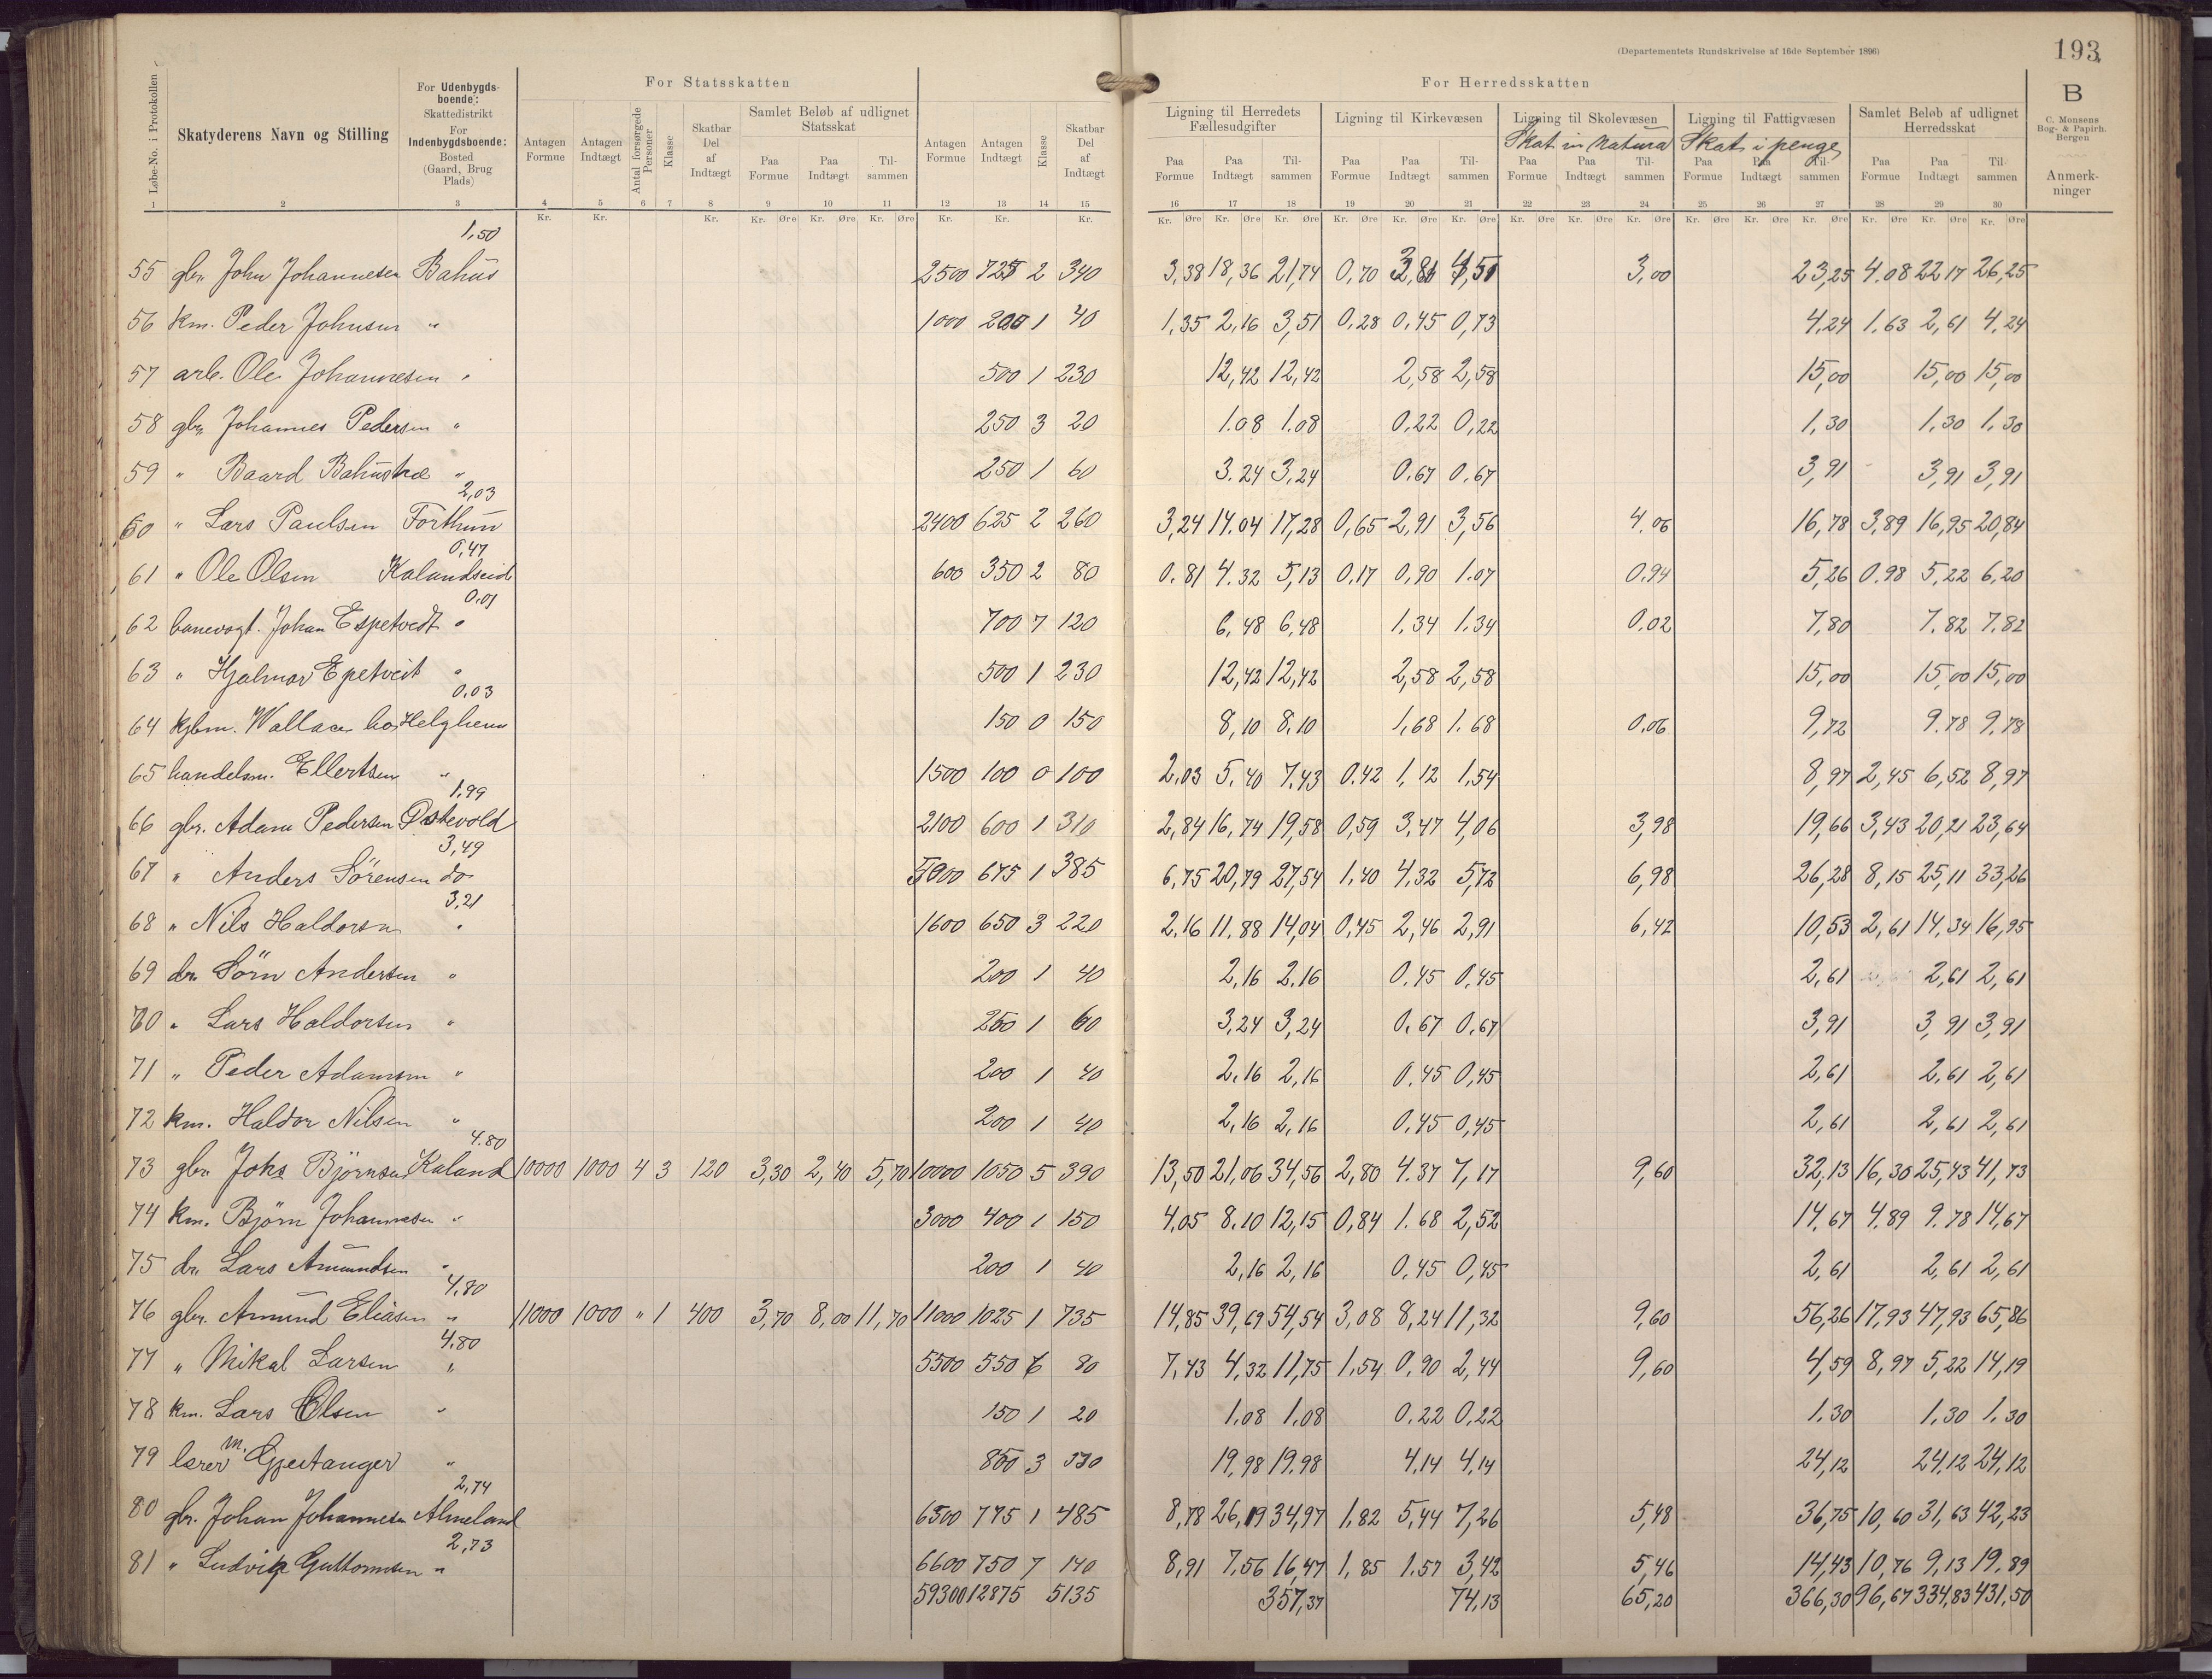 (Departementets Rundskrivelse af 16de September 1896)
193
For Statsskatten
For Herredsskatten
B
C. Monsens Bog- & Papirh. Bergen
Løbe-No. i Protokollen
Skatyderens Navn og Stilling
For Udenbygdsboende: Skattedistrikt For Indenbygdsboende: Bosted (Gaard, Brug Plads)
Antagen Formue
Antagen Indtægt
Antal forsørgede Personer
Klasse
Skatbar Del af Indtægt
Samlet Beløb af udlignet Statsskat
Paa Formue Paa Indtægt Tilsammen
Antagen Formue
Antagen Indtægt
Klasse
Skatbar Del af Indtægt
Ligning til Herredets Fællesudgifter
Paa Formue Paa Indtægt Tilsammen
Ligning til Kirkevæsen
Paa Formue Paa Indtægt Tilsammen
Ligning til Skolevæsen
Skat in Natura
Paa Formue Paa Indtægt Tilsammen
Ligning til Fattigvæsen
Skat i penge
Paa Formue Paa Indtægt Tilsammen
Samlet Beløb af udlignet Herredsskat
Paa Formue Paa Indtægt Tilsammen
Anmerkninger
1 2 3 4 5 6 7 8 9 10 11 12 13 14 15 16 17 18 19 20 21 22 23 24 25 26 27 28 29 30
Kr. Kr. Kr. Kr. Øre Kr. Øre Kr. Øre Kr. Kr. Kr. Kr. Øre Kr. Øre Kr. Øre Kr. Øre Kr. Øre Kr. Øre Kr. Øre Kr. Øre Kr. Øre Kr. Øre Kr. Øre Kr. Øre Kr. Øre Kr. Øre Kr. Øre
1,50
55 gbr. John Johannesen Bahus 2500 725 2 340 3,38 18,36 21,74 0,70 3,81 4,51 3,00 23,25 4,08 22,17 26,25
56 km. Peder Johnsen " 1000 200 1 40 1,35 2,16 3,51 0,28 0,45 0,73 4,24 1,63 2,61 4,24
57 arb. Ole Johannesen " 500 1 230 12,42 12,42 2,58 2,58 15,00 15,00 15,00
58 gbr. Johannes Pedersen " 250 3 20 1.08 1.08 0.22 0,22 1,30 1,30 1,30
59 " Baard Bahus " 250 1 60 3.24 3,24 0.67 0.67 3,91 3,91 3,91
2,03
60 " Lars Paulsen Forthun 2400 625 2 260 3,24 14.04 17,28 0,65 2,91 3,56 4.06 16,78 3,89 16,95 20,84
0,47
61 " Ole Olsen Kalandseid 600 350 2 80 0.81 4.32 5,13 0,17 0,90 1.07 0.94 5,26 0.98 5,22 6,20
0.01
62 banevogt. Johan Espetvedt " 700 7 120 6,48 6,48 1,34 1.34 0.02 7,80 7.82 7.82
63 " Hjalmar Epetveit " 500 1 230 12,42 12,42 2,58 2,58 15,00 15,00 15,00
0.03
64 kjbm. Wallace hos Helgheim 150 0 150 8,10 8.10 1,68 1.68 0.06 9,72 9.78 9,78
65 handelsm. Ellertsen " 1500 100 0 100 2.03 5.40 7.43 0.42 1,12 1,54 8,97 2,45 6,52 8,97
1,99
66 gbr. Adam Pedersen Østevold 2100 600 1 310 2,84 16,74 19,58 0,59 3,47 4,06 3,98 19,66 3,43 20,21 23,64
3,49
67 " Anders Sörensen do 5000 675 1 385 6,75 20,79 27,54 1,40 4,32 5,72 6,98 26,28 8,15 25,11 33,26
3,21
68 " Nils Haldorsen " 1600 650 3 220 2,16 11.88 14,04 0,45 2,46 2,91 6,42 10,53 2,61 14,34 16,95
69 dr. Sörn Andersen " 200 1 40 2,16 2,16 0.45 0,45 2,61 2,61 2,61
70 " Lars Haldorsen " 250 1 60 3,24 3,24 0.67 0.67 3,91 3,91 3,91
71 " Peder Adamsen " 200 1 40 2.16 2,16 0.45 0,45 2,61 2,61 2,61
72 km. Haldor Nilsen " 200 1 40 2,16 2,16 0.45 0,45 2,61 2,61 2,61
4.80
73 gbr. Johs Björnsen Kaland 10000 1000 4 3 120 3,30 2,40 5,70 10000 1050 5 390 13,50 21,06 34,56 2,80 4.37 7,17 9,60 32,13 16,30 25,43 41,73
74 km. Björn Johannesen " 3000 400 1 150 4,05 8.10 12,15 0,84 1.68 2,52 14,67 4.89 9.78 14,67
75 dr. Lars Amundsen " 200 1 40 2,16 2,16 0,45 0,45 2,61 2,61 2,61
4,80
76 gbr. Amund Eliasen " 11000 1000 " 1 400 3,70 8,00 11,70 11000 1025 1 735 14,85 39,69 54,54 3,08 8,24 11,32 9,60 56,26 17,93 47,93 65,86
4.80
77 " Mikal Larsen " 5500 550 6 80 7,43 4,32 11,75 1.54 0.90 2,44 9,60 4,59 8,97 5,22 14,19
78 km. Lars Olsen " 150 1 20 1.08 1.08 0.22 0,22 1.30 1.30 1.30
79 lærer M. Gjertanger " 800 3 370 19,98 19.98 4,14 4,14 24,12 24,12 24,12
2,74
80 gbr. Johan Johannesen Almeland 6500 775 1 485 8,78 26,19 34,97 1,82 5,44 7,26 5,48 36,75 10,60 31,63 42,23
2,73
81 " Ludvik Guttormsen " 6600 750 7 140 8,91 7.56 16,47 1,85 1.57 3,42 5,46 14,43 10,76 9,13 19.89
59300 12875 5135 357,37 74,13 65,20 366,30 96,67 334,83 431,50